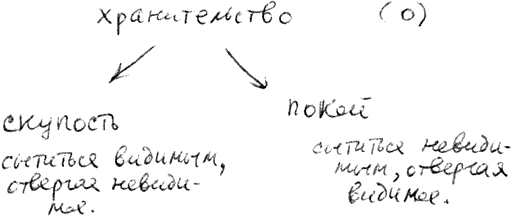 хранительство (о)
скупость
сытиться видимым,
отвергая невиди-
мое.
покой
сытиться невиди-
мым, отвергая
видимое.